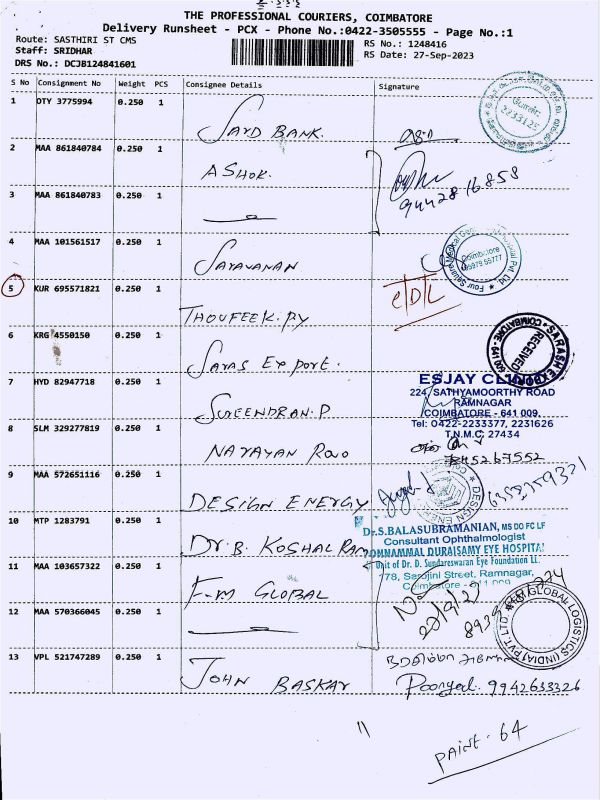 THE PROFESSIONAL COURIERS, COIMBATORE
Delivery Runsheet - PCX - Phone No.:0422-3505555 - Page No.:1
Route: SASTHIRI ST CMS
RS No.: 1248416
Staff: SRIDHAR
RS Date: 27-Sep-2023
DRS No.: DCJB124841601
S No Consignment No Weight PCS Consignee Details Signature
1 OTY 3775994 0.250 1
SAYD BANK.
2233125
2 MAA 861840784 0.250 1
ASHOK.
3 MAA 861840783 0.250 1
9442816858
4 MAA 101561517 0.250 1
SARAVANAN
Coimbatore
Four Square Medical
Hospital Pvt Ltd
5 KUR 695571821 0.250 1
THOUFEEK.PY
6 KRG 4550150 0.250 1
SARAS EXPORT.
RECEIVED
COIMBATORE - 641
7 HYD 82947718 0.250 1
SURENDRAN.P
ESJAY CLINIC
224, SATHYAMOORTHY ROAD
RAMNAGAR
COIMBATORE - 641 009.
Tel: 0422-2233377, 2231626
T.N.M.C. 27434
8 SLM 329277819 0.250 1
NARAYAN RAO
9 MAA 572651116 0.250 1
DESIGN ENERGY
DESIGN ENERGY
10 MTP 1283791 0.250 1
DR.B. KOSHAL RAM
Dr.S.BALASUBRAMANIAN, MS DO FC LF
Consultant Ophthalmologist
PONNAMMAL DURAISAMY EYE HOSPITAL
Unit of Dr. D. Sundareswaran Eye Foundation
178, Sarojini Street, Ramnagar,
11 MAA 103657322 0.250 1
F.M GLOBAL
12 MAA 570366045 0.250 1
FM GLOBAL LOGISTICS (INDIA) PVT. LTD
13 VPL 521747289 0.250 1
JOHN BASKAR
9942633326
PAINT - 64